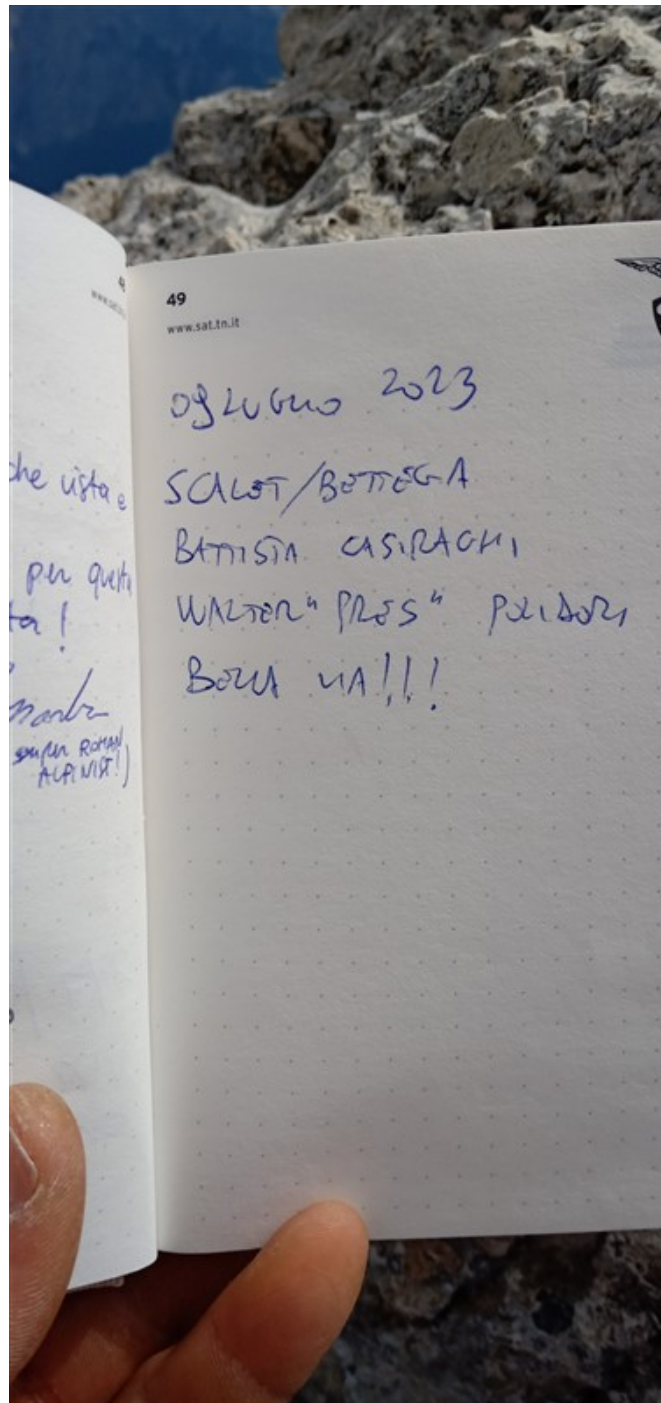 che vista e
per questa
ta!
super ROMAN
ALPINIST!)
49
www.sat.tn.it
09 LUGLIO 2023
SCALET/BETTEGA
BATTISTA CASIRAGHI
WALTER "PRES" POLIDORI
BELLA VIA!!!